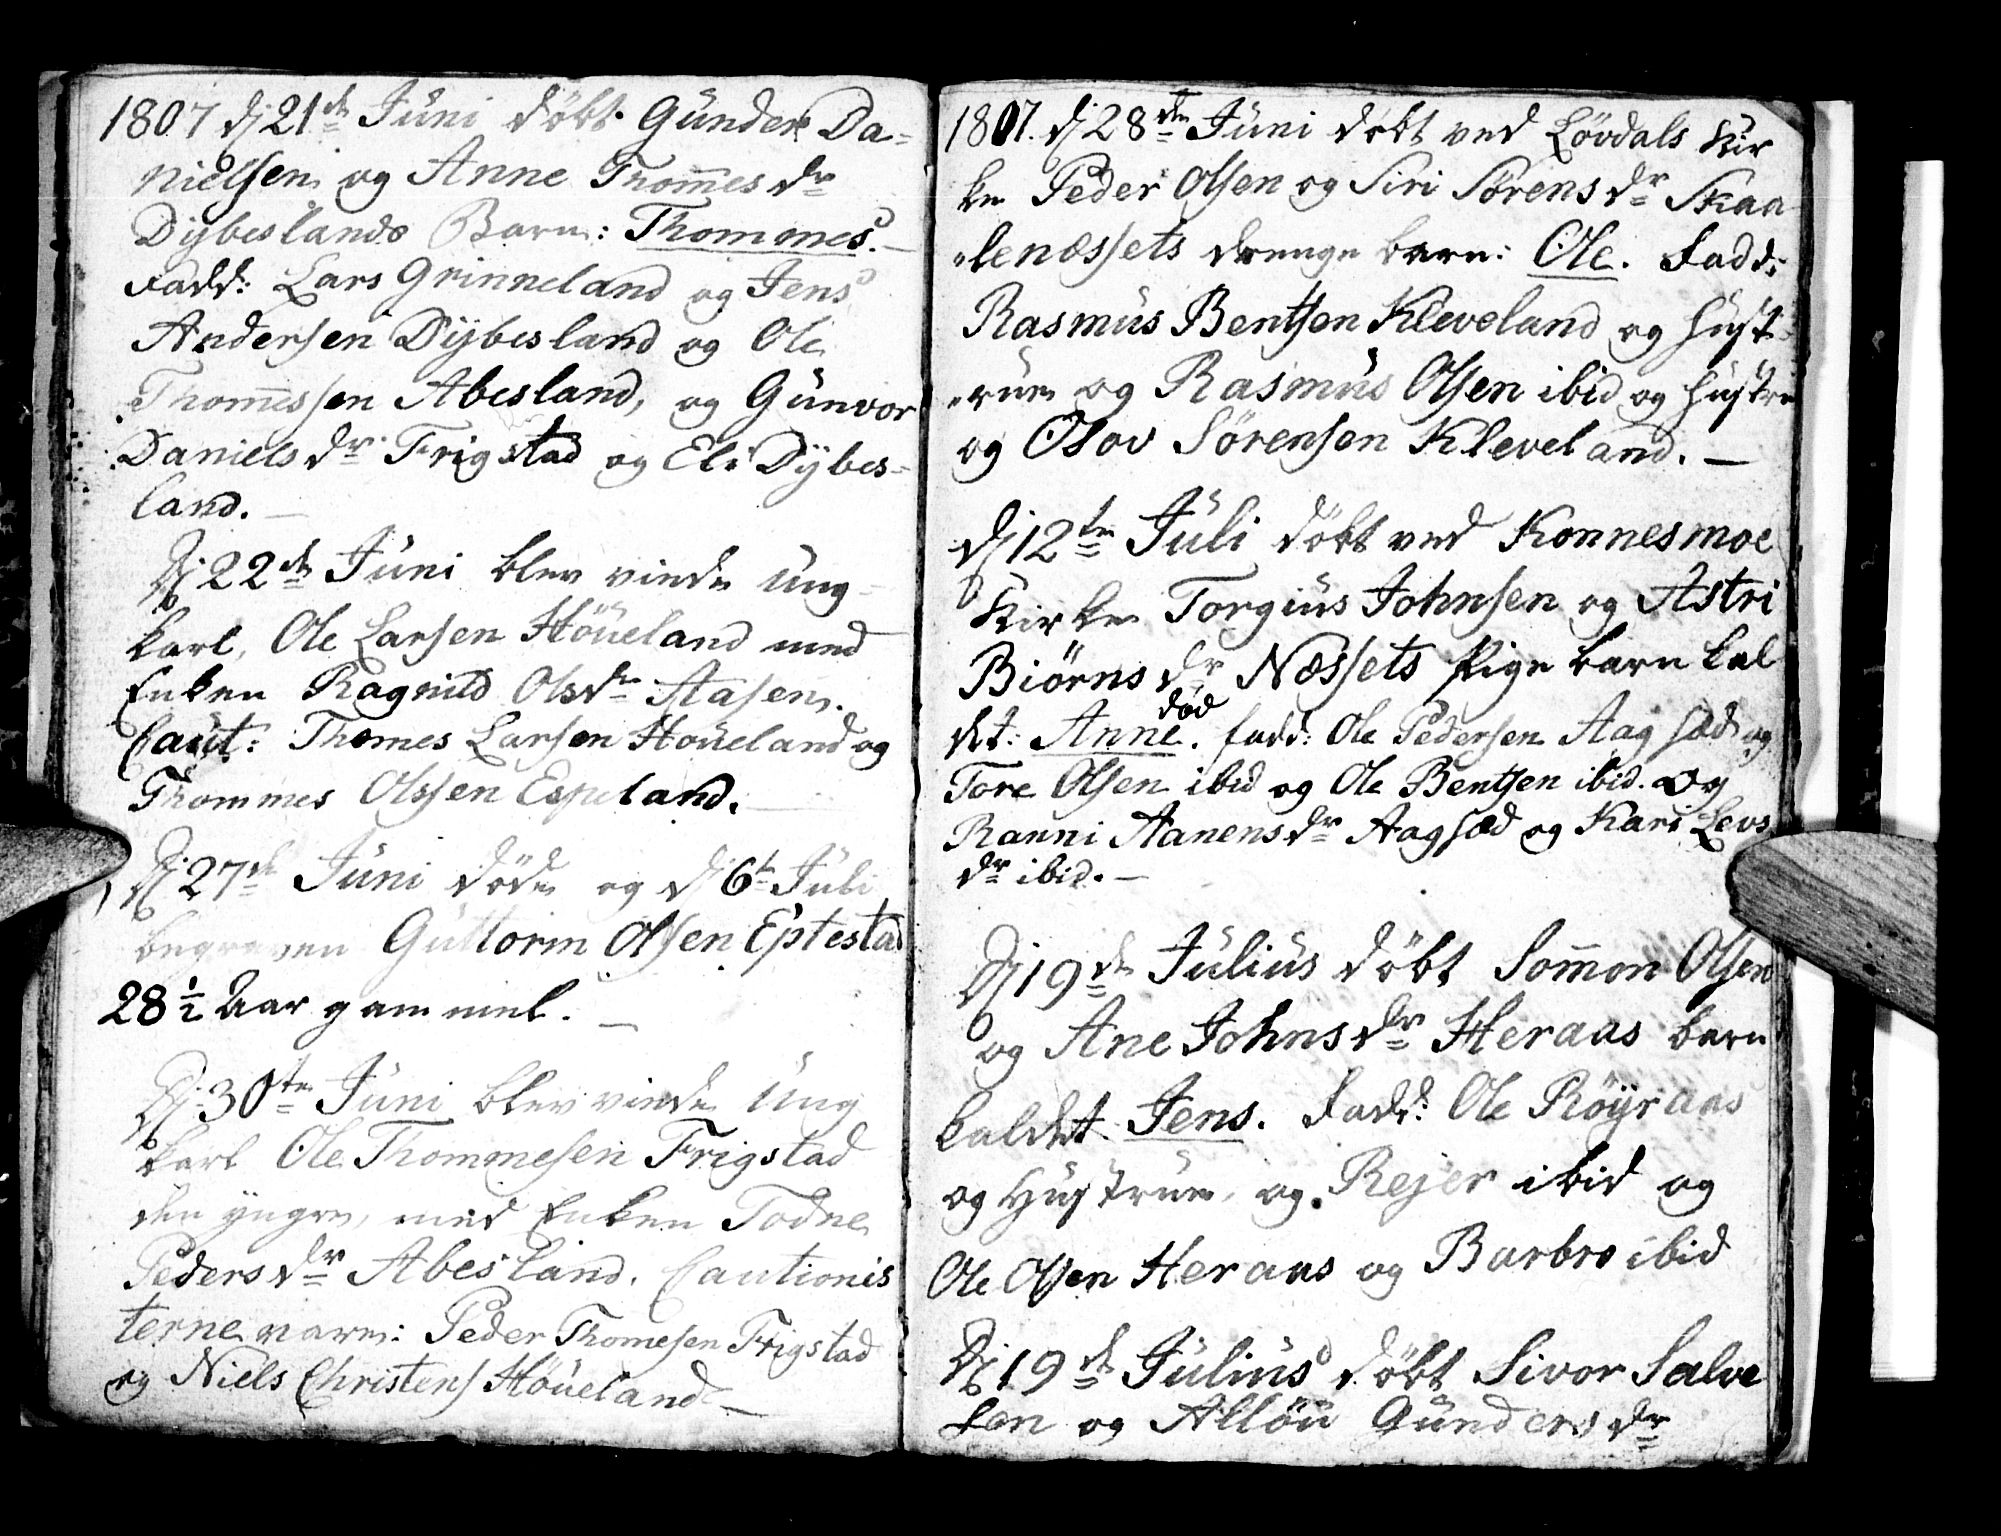 1807 dj 21de Juni döbt Gunder Da-
nielsen og Anne Thom̄es dr
Dybeslands Barn: Thommes. —
Fadd: Lars Grinneland og Jens
Andersen Dybesland og Ole
Thom̄essen Abesland, og Gunvor
Daniels dr Frigstad og Eli Dybes-
land. —
Dj 22de Juni blev viede Ung-
karl, Ole Larsen Höueland med
Enken Ragnild Olsdr Aasen.
Caut: Thomes Larsen Höueland og
Thommes Olssen Espeland. —
Dj 27de Juni döde og dj 6te Juli
begraven Guttorm Olsen Eptestad
28 1/2 Aar gammel. —
Dj 30te Juni blev viede Ung
karl Ole Thommesen Frigstad
den yngre, med Enken Todne
Peders dr Abesland. Cautionis
terne vare: Peder Thomesen Frigstad
og Niels Christens Höueland —
1807. dj 28de Juni döbt ved Lövdals Kir
ke Peder Olsen og Siri Sörens dr Skaa
lenæssets drenge barn: Ole. Fadd:
Rasmus Bentsen Kleveland og Hust-
rue og Rasmus Olsen ibid og Hustru
og Osov Sörensen Kleveland. —
dj 12te Juli döbt ved Konnesmoe
Kirke Torgius Johnsen og Astri
Biörns dr Næssets Pige barn kal
död
det: Anne. fadd: Ole Pedersen Aagsæd og
Tore Olsen ibid og Ole Bentsen ibid. og
Ranni Aanensdr Aagsæd og Kari Levs
dr ibid. —
Dj 19de Julius döbt Som̄on Olsen
og Ane Johnsdr Heraas barn
kaldet Jens. Fadd: Ole Röyraas
og Hustrue, og Rejer ibid og
Ole Olsen Heraas og Barbro ibid
Dj 19de Julius döbt Sivor Salve
sen og Allöu Gunders dr